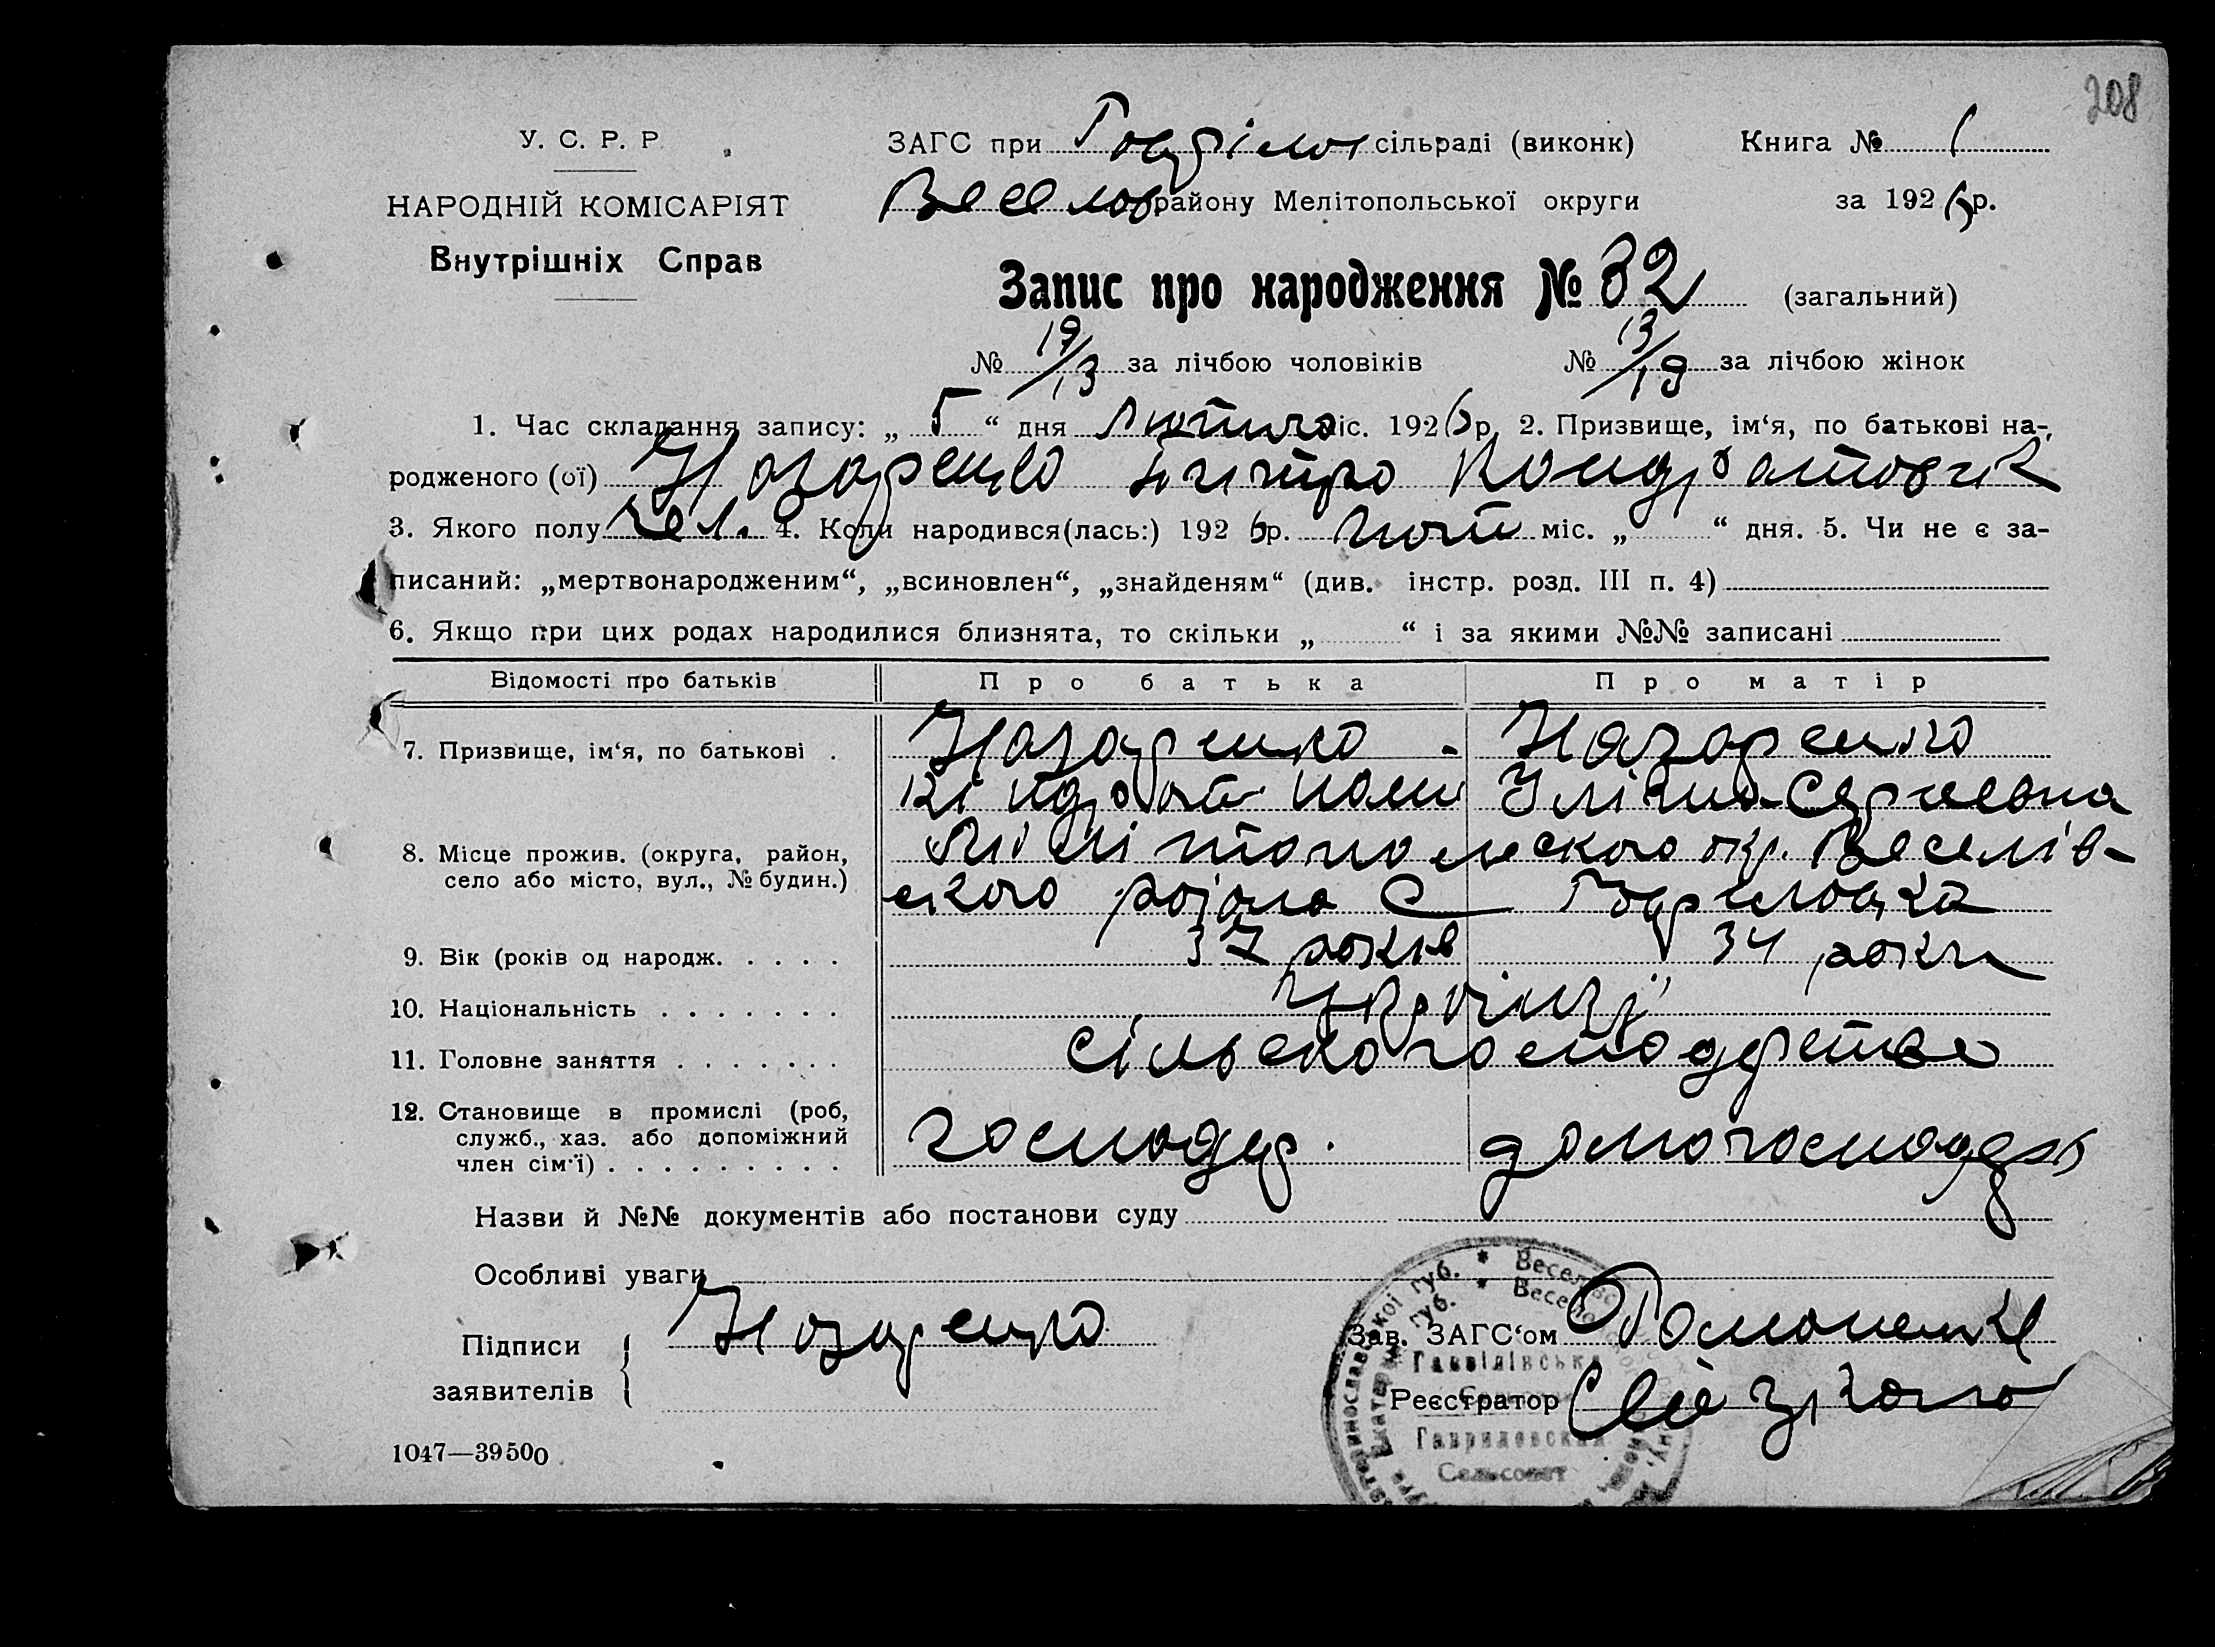 208
У. С. Р. Р.
НАРОДНІЙ КОМІСАРІЯТ
Внутрішніх Справ
ЗАГС при Гаврілов сільраді (виконк) Книга № 1
Весело району Мелітопольської округи за 1926 р.
Запис про народження № 32 (загальний)
№ 19/13 за лічбою чоловіків № 13/19 за лічбою жінок
1. Час складання запису: „ 5 “ дня Лютого міс. 1926 р. 2. Призвище, ім‘я, по батькові на-
родженого (ої) Назаренко Кондратович
3. Якого полу чол. 4. Коли народився(лась:) 1926 р. Лют міс. „ “ дня. 5. Чи не є за-
писаний: „мертвонародженим“, „всиновлен“, „знайденям“ (див. інстр. розд. III п. 4)
6. Якщо при цих родах народилися близнята, то скільки „ “ і за якими №№ записані
Відомості про батьків Про батька Про матір
7. Призвище, ім‘я, по батькові . Назаренко Назаренко
Кіндрат Сергеевна
8. Місце прожив. (округа, район, Мелітопольского окр. Веселів-
село або місто, вул., № будин.) ского району С Гавриловка
9. Вік (років од народж. . . . . 37 років 34 роки
10. Національність . . . . . . . Українці
11. Головне заняття . . . . . . . сільско господарство
12. Становище в промислі (роб,
служб., хаз. або допоміжний господар. домогосподар
член сім‘ї) . . . . . . . . .
Назви й №№ документів або постанови суду
Особливі уваги
Підписи Назаренко Зав. ЗАГС‘ом
заявителів Реєстратор
Гаврілівська
Гавриловский
Сельсовет
1047—39500